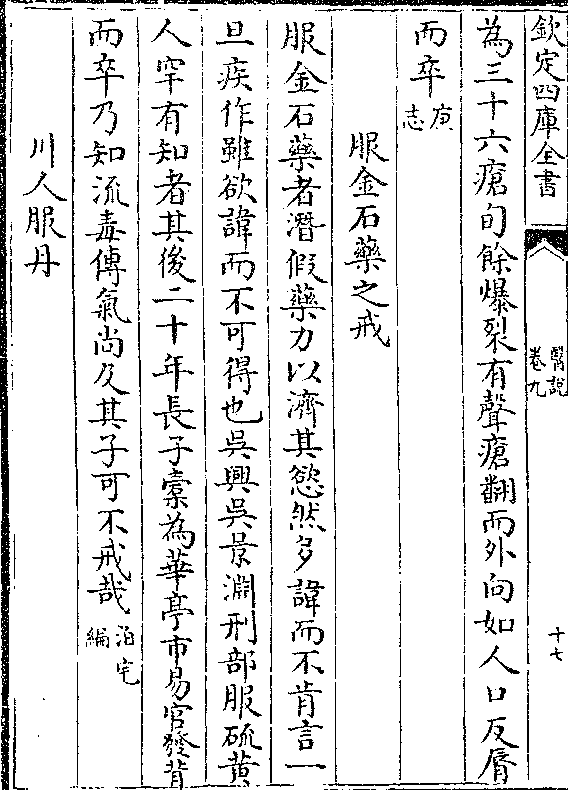 欽定四庫全書
醫說
卷九
十七
為三十六瘡旬餘爆裂有聲瘡翻而外向如人口反脣
而卒庚志
服金石藥之戒
服金石藥者潛假藥力以濟其慾然多諱而不肯言一
旦疾作雖欲諱而不可得也吳興吳景淵刑部服硫黃
人罕有知者其後二十年長子橐為華亭市易官發背
而卒乃知流毒傳氣尚及其子可不戒哉泊宅編
川人服丹